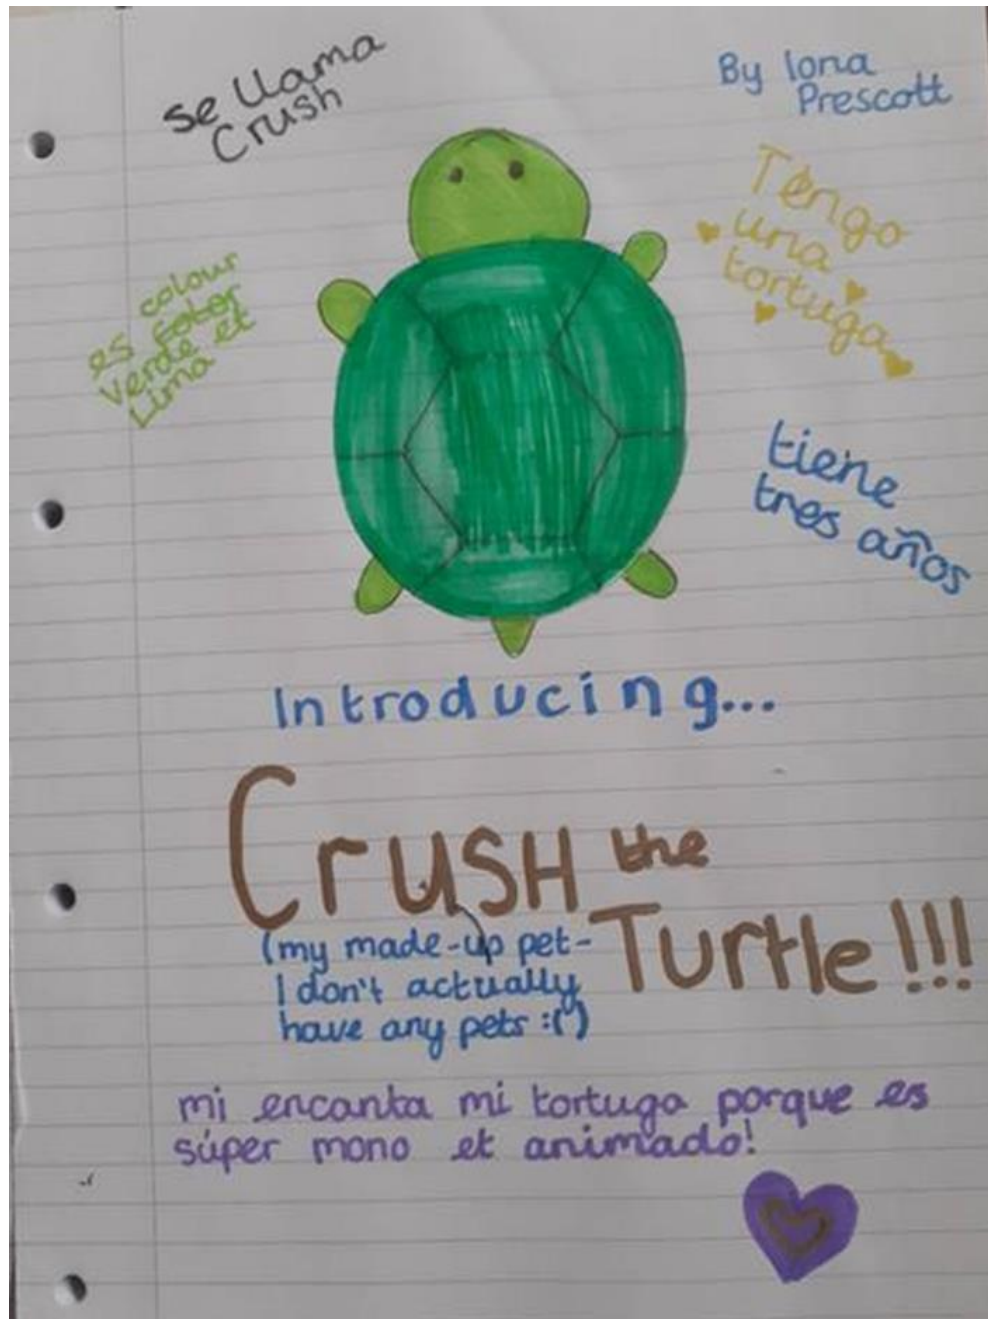 se llama
Crush
By Iona
Prescott
Tengo
una
tortuga
colour
es
verde et
Lima
tiene
tres años
Introducing...
Crush the
Turtle!!!
(my made-up pet-
I don't actually
have any pets :(')
mi encanta mi tortuga porque es
súper mono et animado!